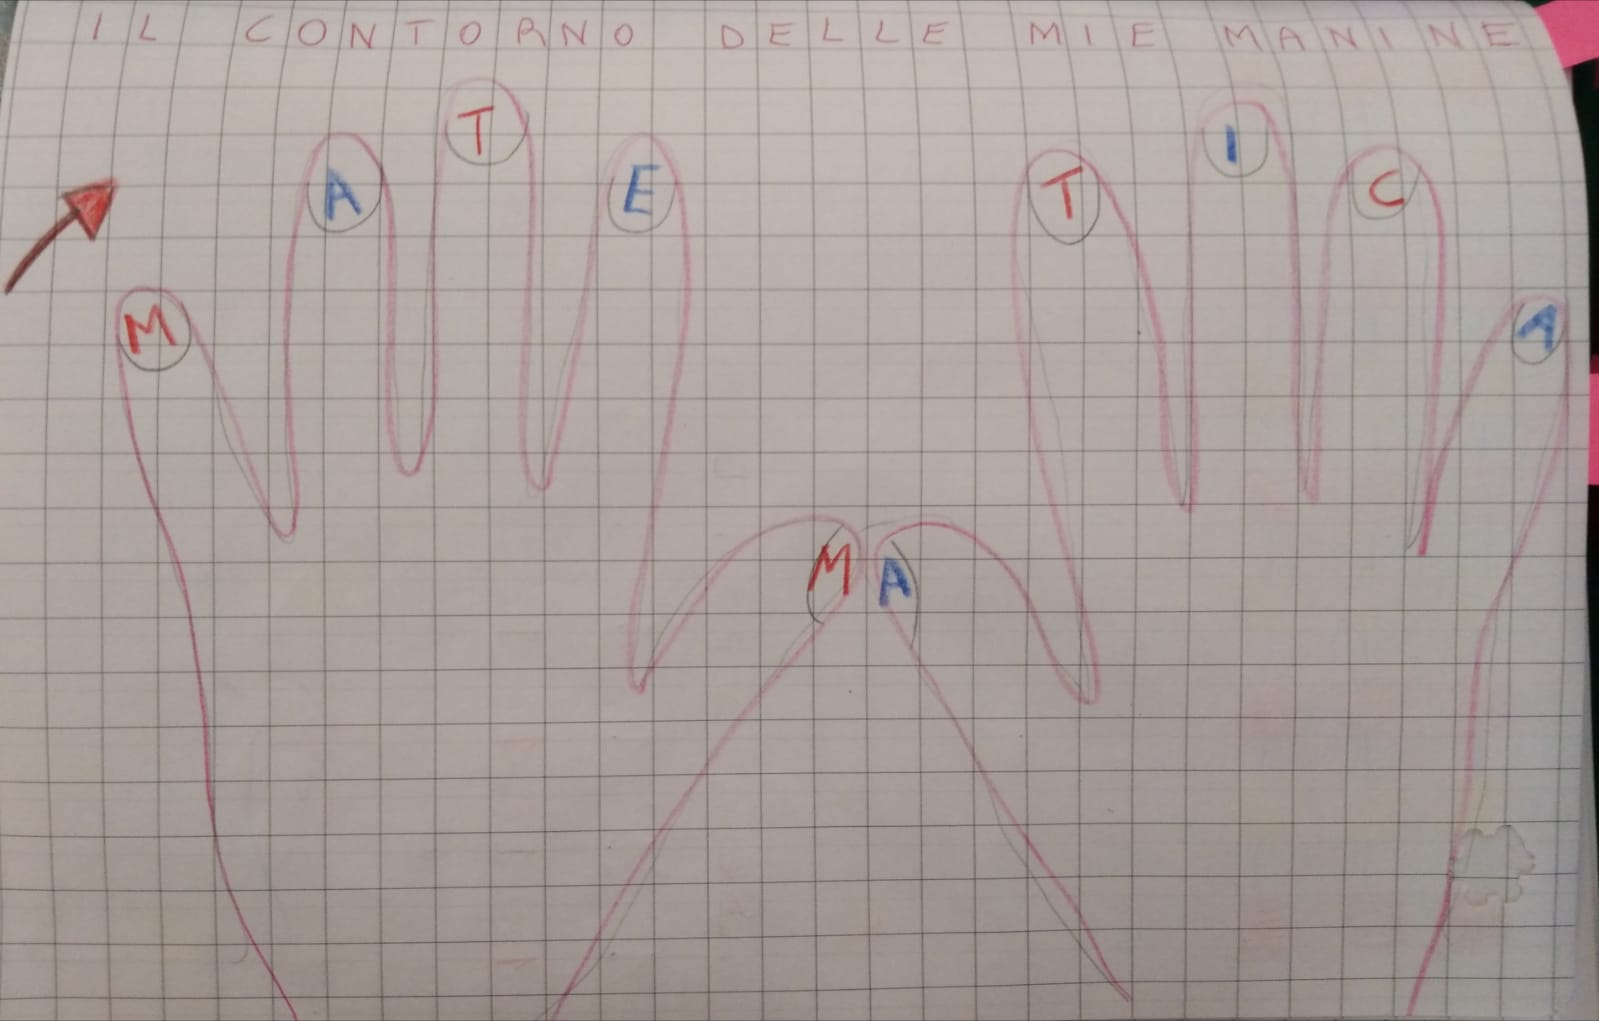 IL CONTORNO DELLE MIE MANINE
M A T E M A T I C A